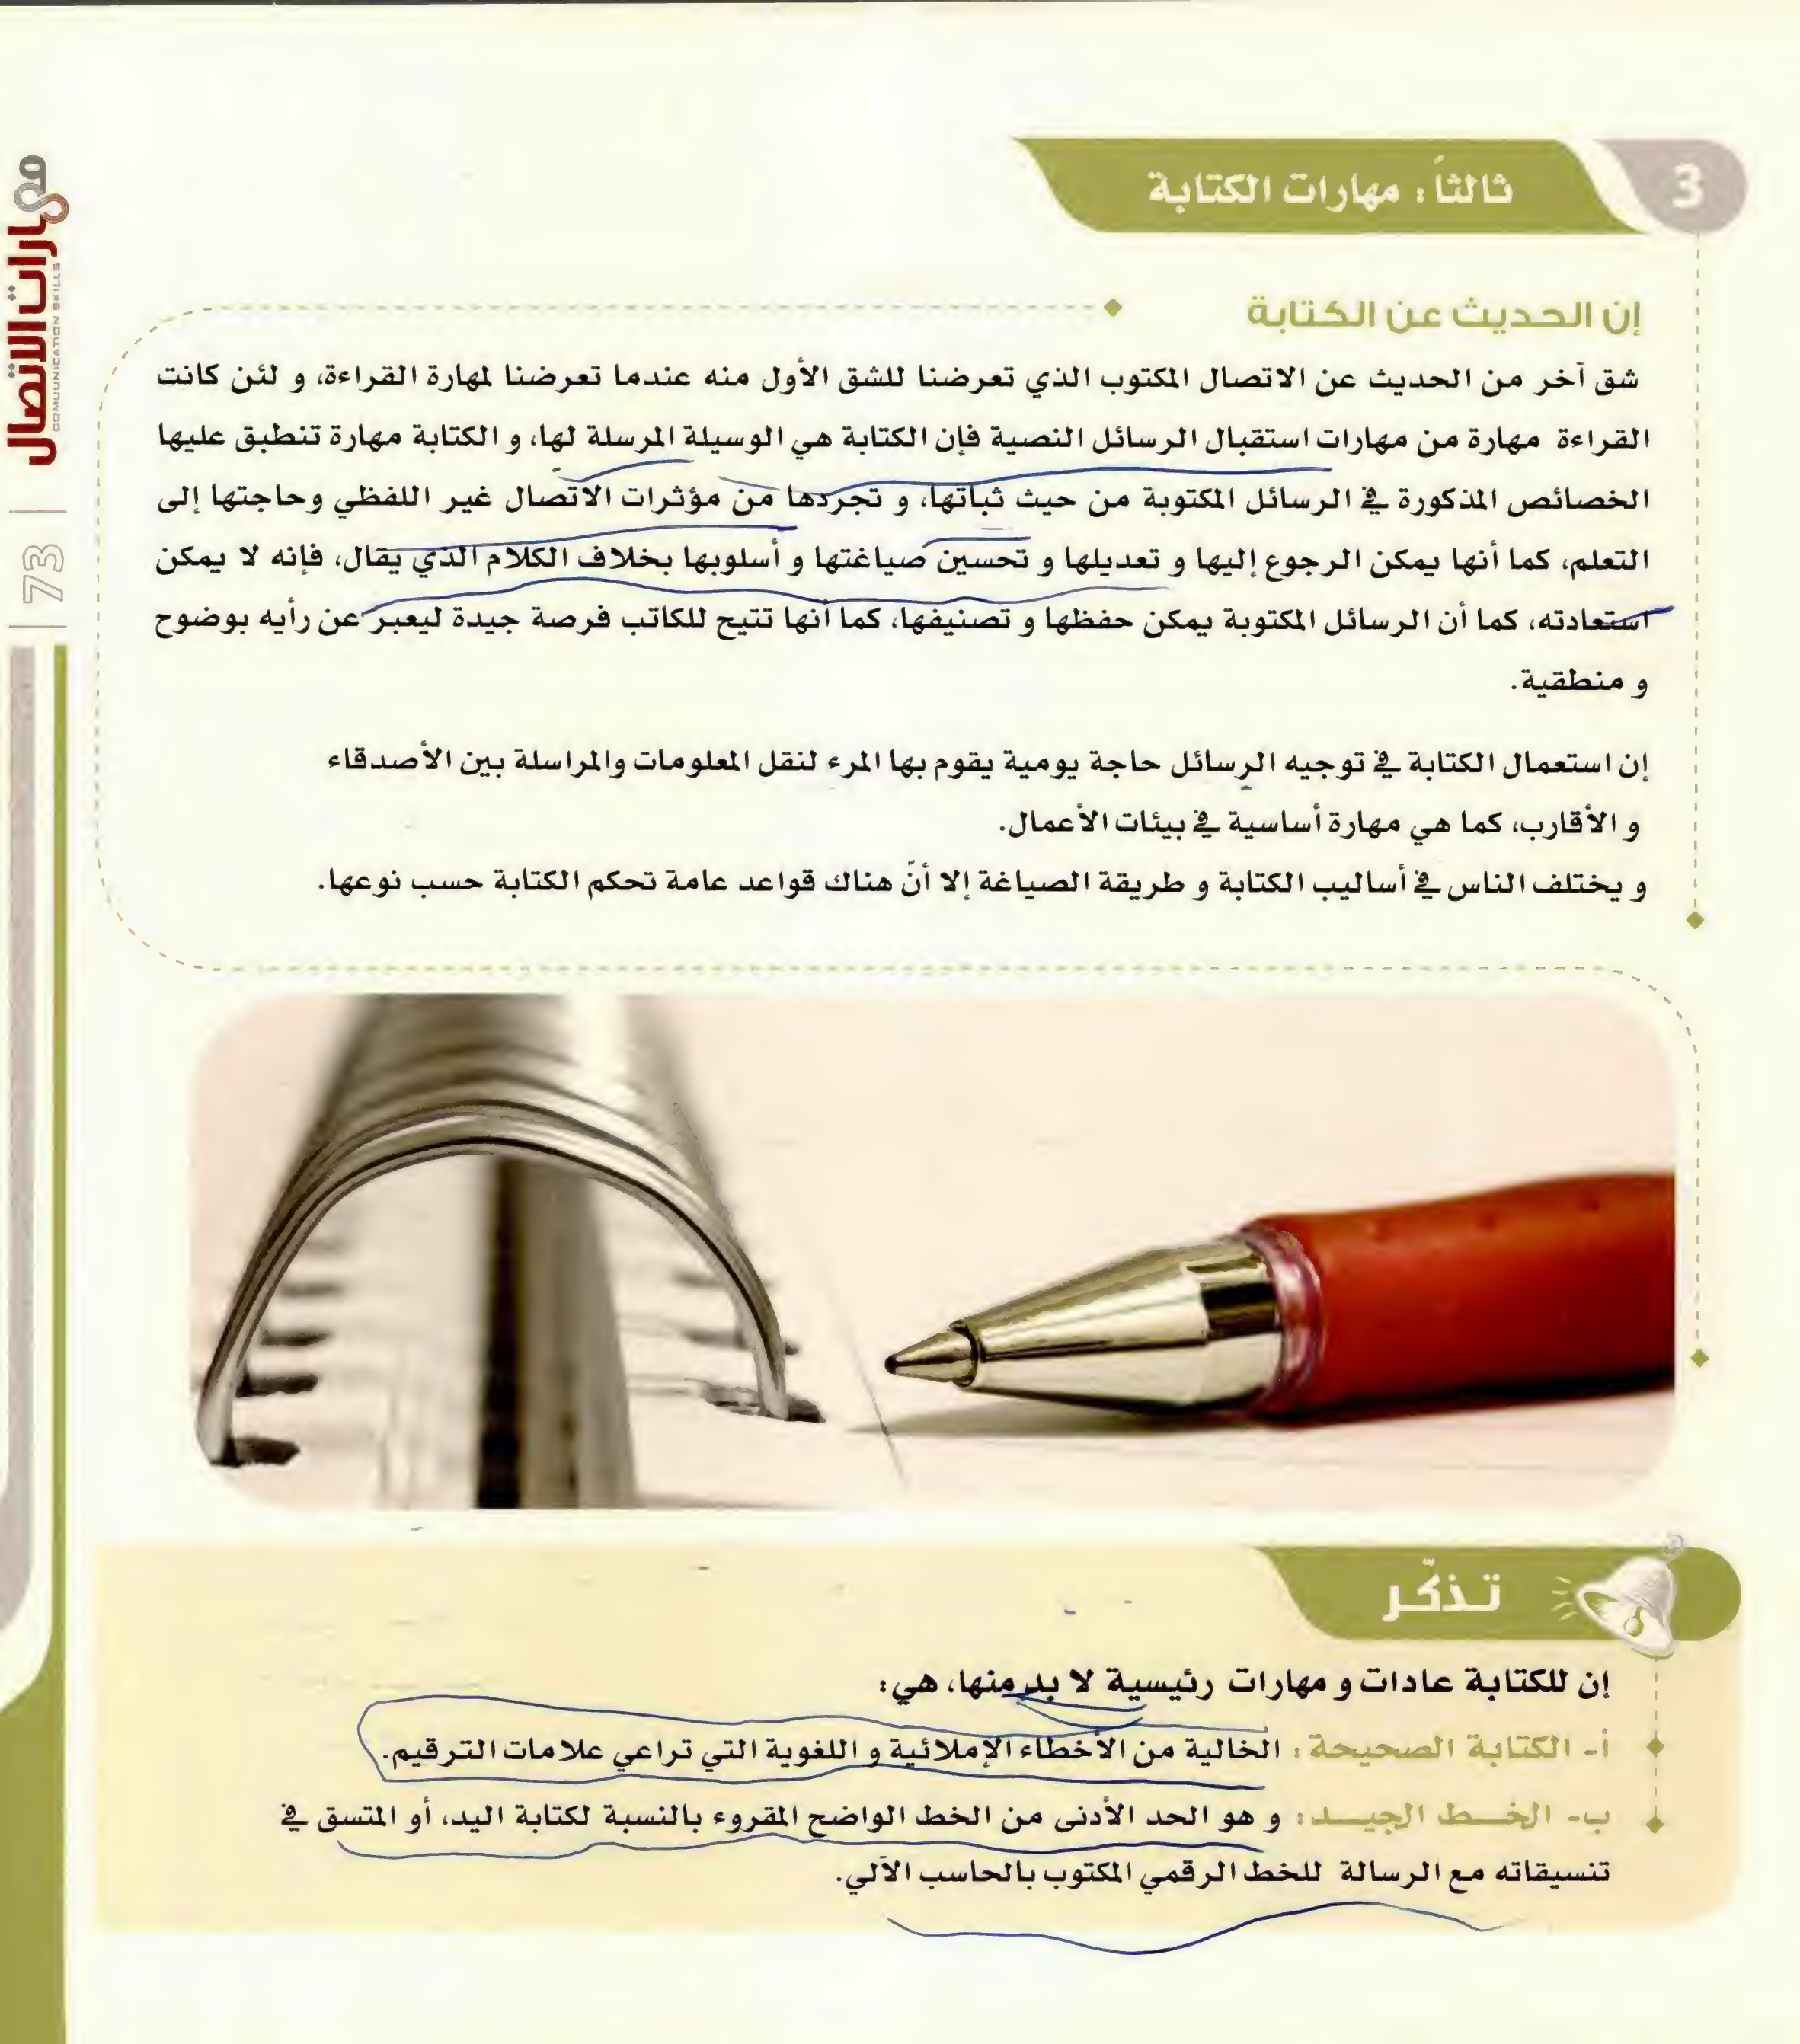 3
ثالثاً : مهارات الكتابة
إن الحديث عن الكتابة
شق آخر من الحديث عن الاتصال المكتوب الذي تعرضنا للشق الأول منه عندما تعرضنا لمهارة القراءة، و لئن كانت
القراءة مهارة من مهارات استقبال الرسائل النصية فإن الكتابة هي الوسيلة المرسلة لها، و الكتابة مهارة تنطبق عليها
الخصائص المذكورة في الرسائل المكتوبة من حيث ثباتها، و تجردها من مؤثرات الاتصال غير اللفظي وحاجتها إلى
التعلم، كما أنها يمكن الرجوع إليها و تعديلها و تحسين صياغتها و أسلوبها بخلاف الكلام الذي يقال، فإنه لا يمكن
استعادته، كما أن الرسائل المكتوبة يمكن حفظها و تصنيفها، كما أنها تتيح للكاتب فرصة جيدة ليعبر عن رأيه بوضوح
و منطقية.
إن استعمال الكتابة في توجيه الرسائل حاجة يومية يقوم بها المرء لنقل المعلومات والمراسلة بين الأصدقاء
و الأقارب، كما هي مهارة أساسية في بيئات الأعمال.
و يختلف الناس في أساليب الكتابة و طريقة الصياغة إلا أنّ هناك قواعد عامة تحكم الكتابة حسب نوعها.
تـذكّـر
إن للكتابة عادات و مهارات رئيسية لا بد منها، هي:
أ- الكتابة الصحيحة : الخالية من الأخطاء الإملائية و اللغوية التي تراعي علامات الترقيم.
ب- الخــط الجيــد : و هو الحد الأدنى من الخط الواضح المقروء بالنسبة لكتابة اليد، أو المتسق في
تنسيقاته مع الرسالة للخط الرقمي المكتوب بالحاسب الآلي.
مهارات الاتصال
COMUNICATION SKILLS
| 73 |